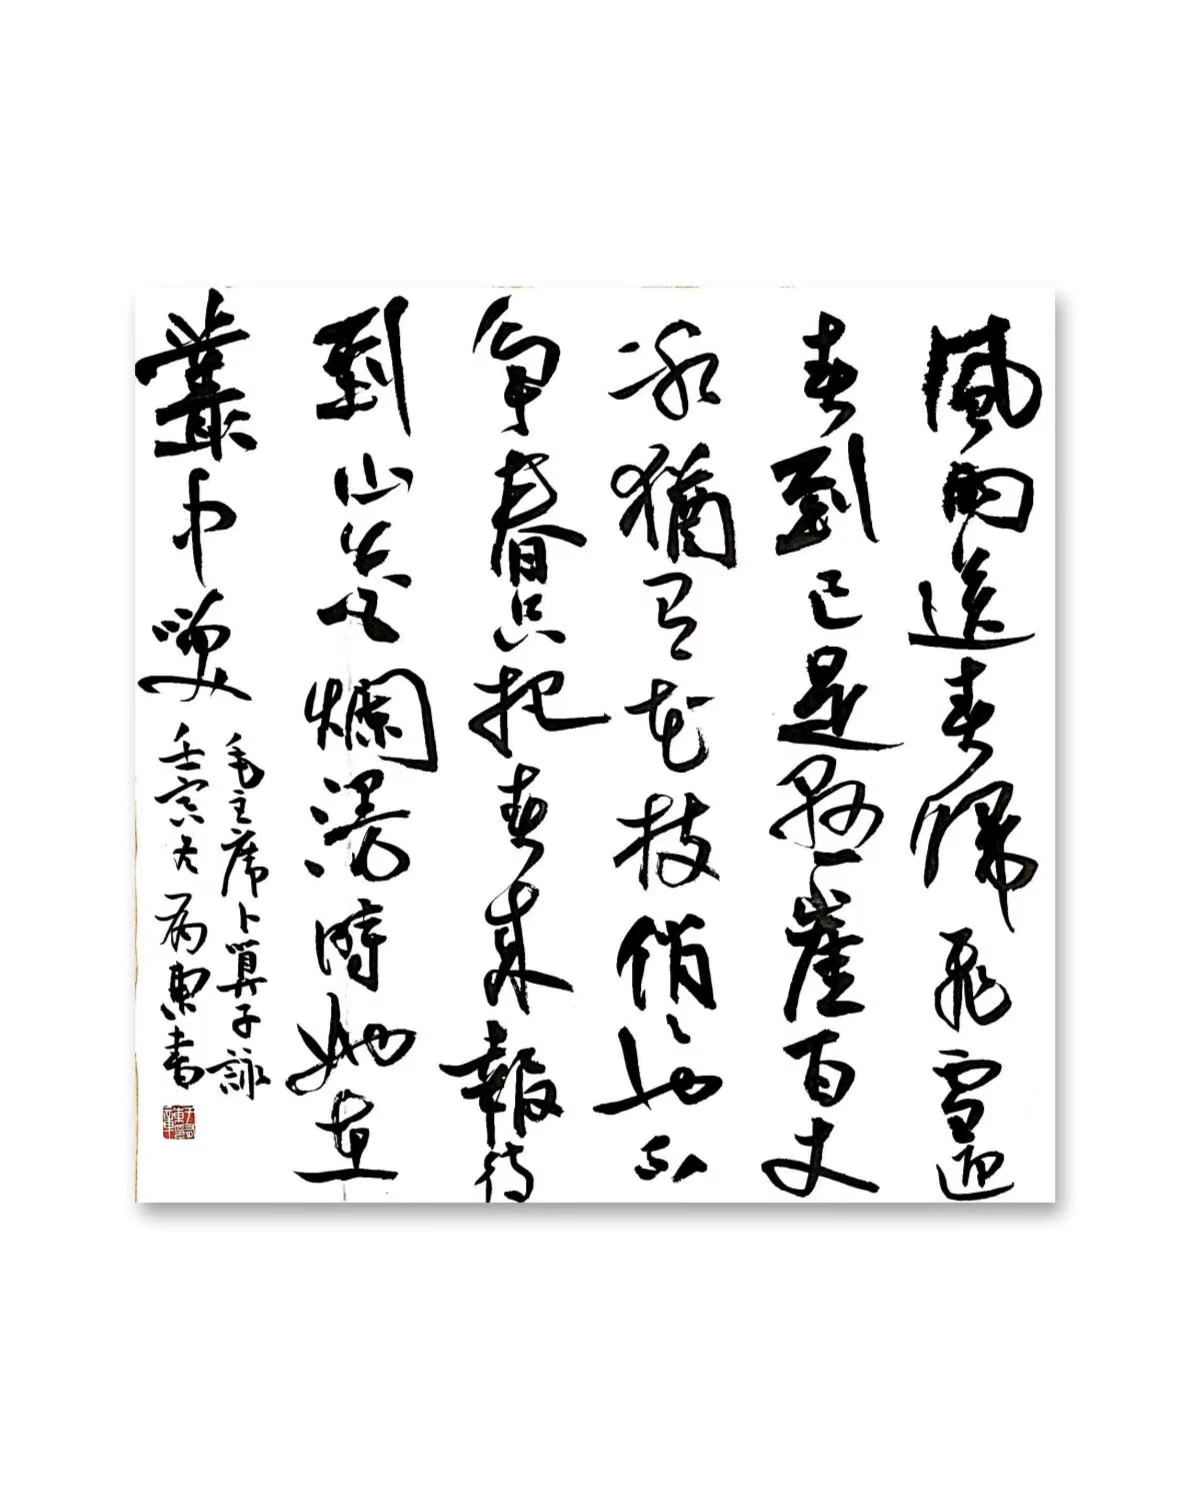 風雨送春歸飛雪迎
春到已是懸崖百丈
冰猶有花枝俏俏也不
争春只把春來報待
到山花爛漫時她在
叢中笑
毛主席卜算子詠
壬寅大為東書